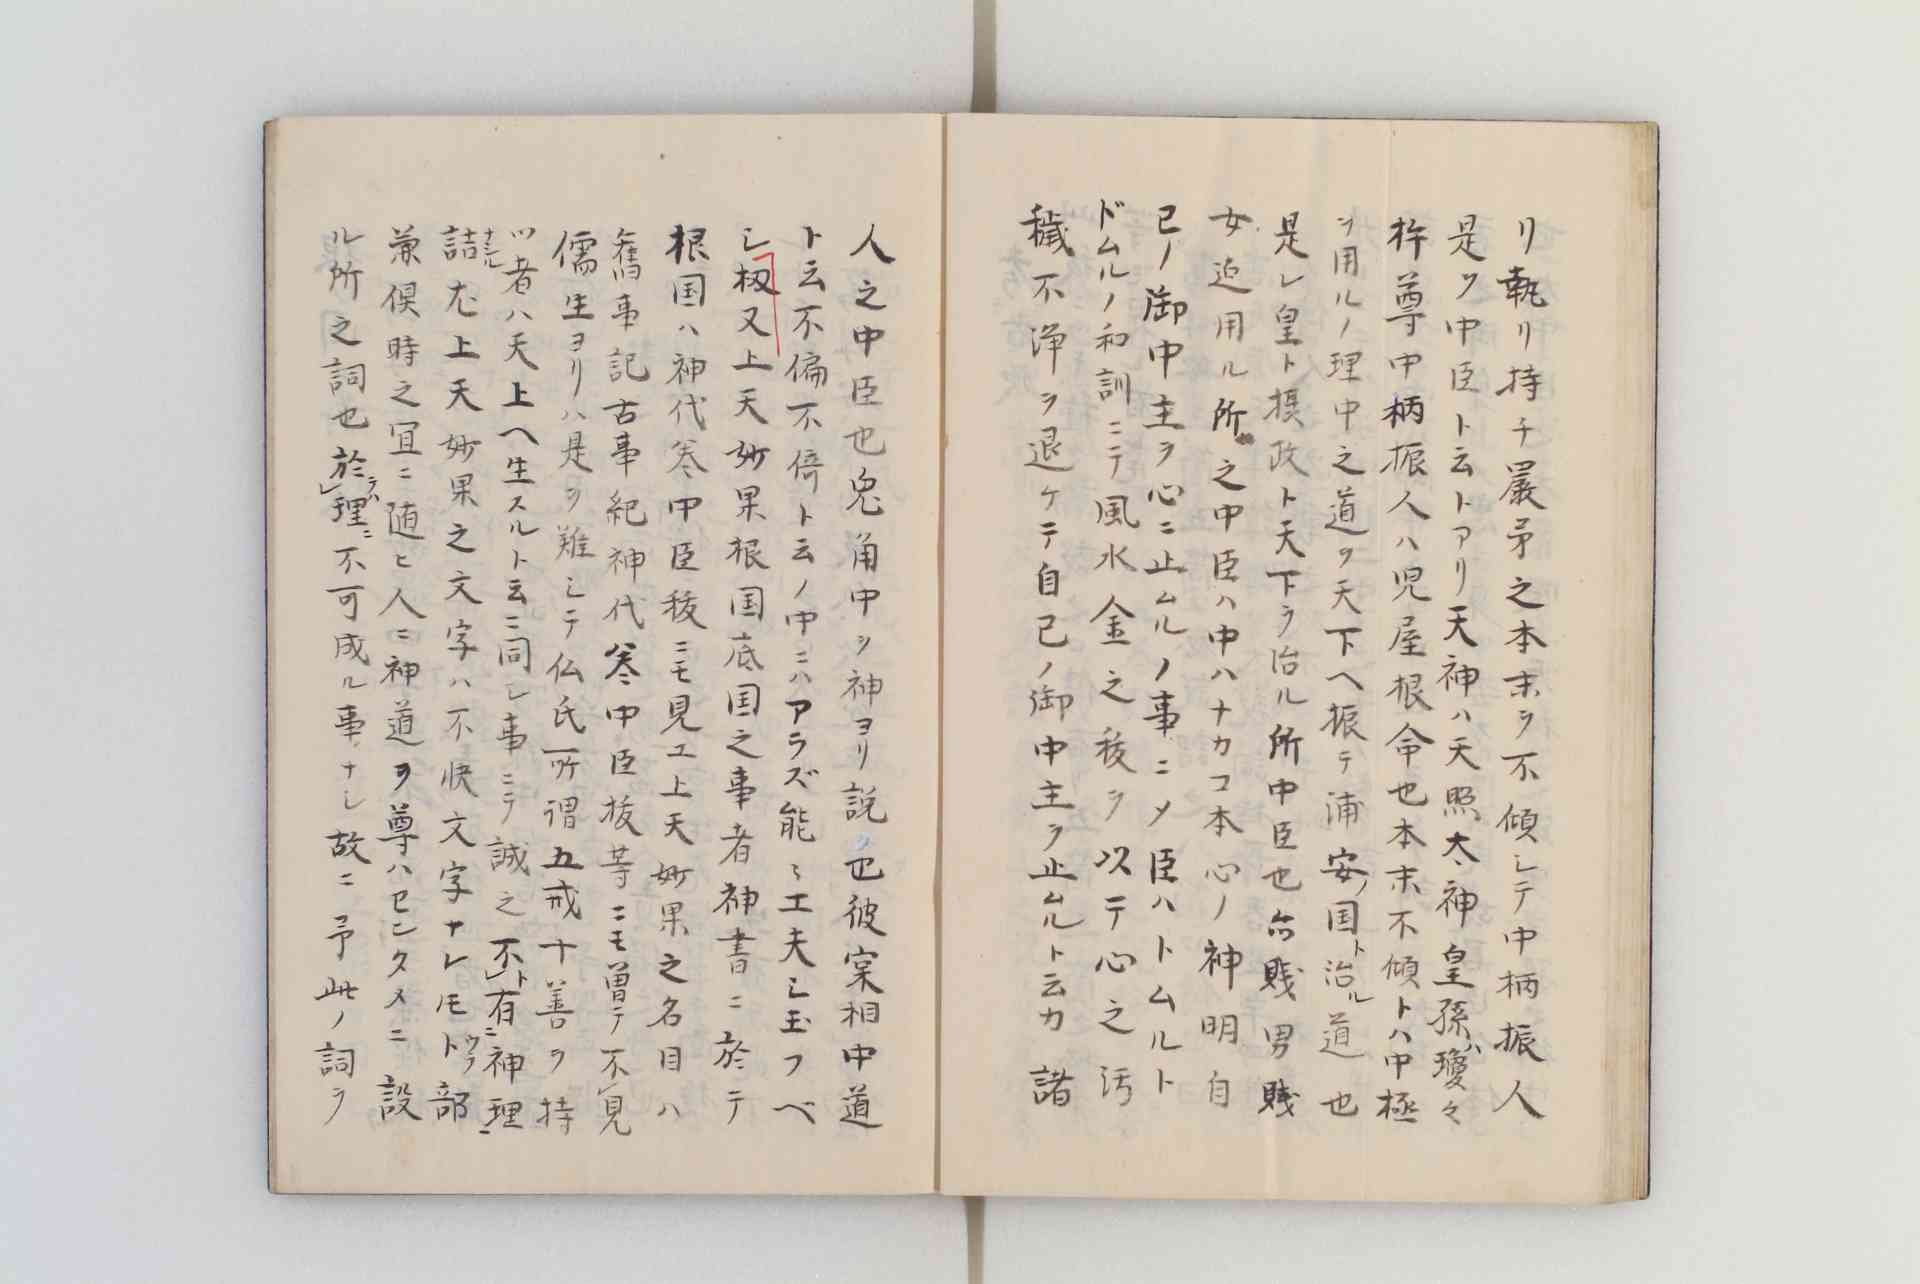 リ執リ持チ嚴矛之本末ヲ不傾シテ中柄振人
是ヲ中臣ト云トアリ天神ハ天照太神皇孫ハ瓊々
杵尊中柄振人ハ児屋根命也本末不傾トハ中極
ヲ用ルノ理中之道ヲ天下ヘ振テ浦安ノ国ト治ル道也
是レ皇ト摂政ト天下ヲ治ル所中臣也尒賎男賎
女迫用ル所之中臣ハ中ハナカコ本心ノ神明自
己ノ御中主ヲ心ニ止ムルノ事ニメ臣ハトムルト
ドムルノ和訓ニテ風水金之祓ヲ以テ心之汚
穢不浄ヲ退ケテ自己ノ御中主ヲ止ムルト云カ諸
人之中臣也兎角中ヲ神ヨリ説ク也彼実相中道
ト云不偏不倚ト云ノ中ニハアラズ能ミ工夫シ玉フベ
シ扨又上天妙果根国底国之事者神書ニ於テ
根国ハ神代巻中臣祓ニモ見エ上天妙果之名目ハ
舊事記古事紀神代巻中臣祓等ニモ曽テ不見
儒生ヨリハ是ヲ難シテ仏氏所謂五戒十善ヲ持
ツ者ハ天上ヘ生スルト云ニ同シ事ニテ誠之不有ト神理ニ
詰ナル尤上天妙果之文字ハ不快文字ナレモト部ウラ
兼倶時之冝ニ随ヒ人ニ神道ヲ尊ハセンタメニ設
ル所之詞也於理ラハニ不可成ル事ナシ故ニ予此ノ詞ヲ